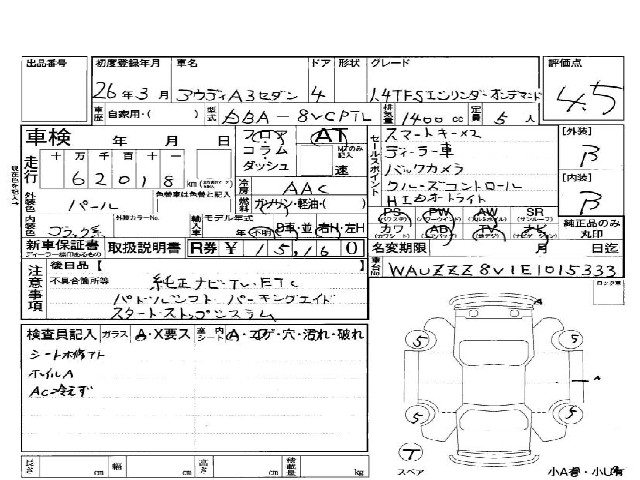 出品番号 初度登録年月 車名 ドア 形状 グレード 評価点
26年3月 アウディA3セダン 4 1.4TFSエンリンダーオンデマンド 4.5
車歴 自家用・( ) 型式 DBA-8VCPTL 排気量 1400cc 定員 5人
車検 年 月 日 フロア AT
コラム
ダッシュ 速
セールスポイント スマートキー×2
ディーラー車
バックカメラ
クルーズコントロール
HIDオートライト
[外装]
B
[内装]
B
走行 十 万 千 百 十 一
62018 km
冷房 AAC
外装色 パール 色替車は元色と記入
燃料 ガソリン・軽油・( )
内装色 ブラック系 外装カラーNo. 輸入車 モデル年式
年(不明) D車・並 右H・左H
PS PW AW SR
カワ AB TV ナビ
純正品のみ
丸印
新車保証書 取扱説明書 R券 ¥ 15,160
名変期限 月 日迄
車台No. WAUZZZ8V1E1015333
注意事項 後日品【 】
不具合箇所等 純正ナビ・TV・ETC
パドルシフト パーキングエイド
スタートストップシステム
検査員記入 ガラス A・X要ス 室内シート A・コゲ・穴・汚れ・破れ
シート水修アト
ホイルA
AC冷えず
5 5
A
5 5
T
スペア 小A有・小U有
長さ cm 幅 cm 高さ cm 積載量 kg